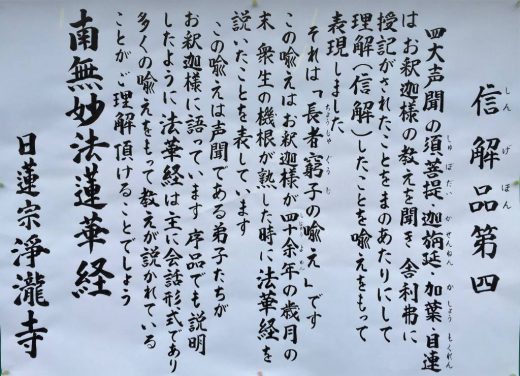 信解品第四
しんげぼん
四大声聞の須菩提・迦旃延・加葉・目連
しゅぼだい かせんねん かしょう もくれん
はお釈迦様の教えを聞き、舎利弗に
授記がされたことをまのあたりにして
理解(信解)したことを喩えをもって
表現しました
それは「長者窮子の喩え」です
ちょうじゃぐうじ
この喩えはお釈迦様が四十余年の歳月の
末 衆生の機根が熟した時に法華経を
説いたことを表しています
この喩えは声聞である弟子たちが
お釈迦様に語っています 序品でも説明
したように 法華経は主に会話形式であり
多くの喩えをもって教えが説かれている
ことがご理解頂けることでしょう
南無妙法蓮華経
日蓮宗 浄瀧寺